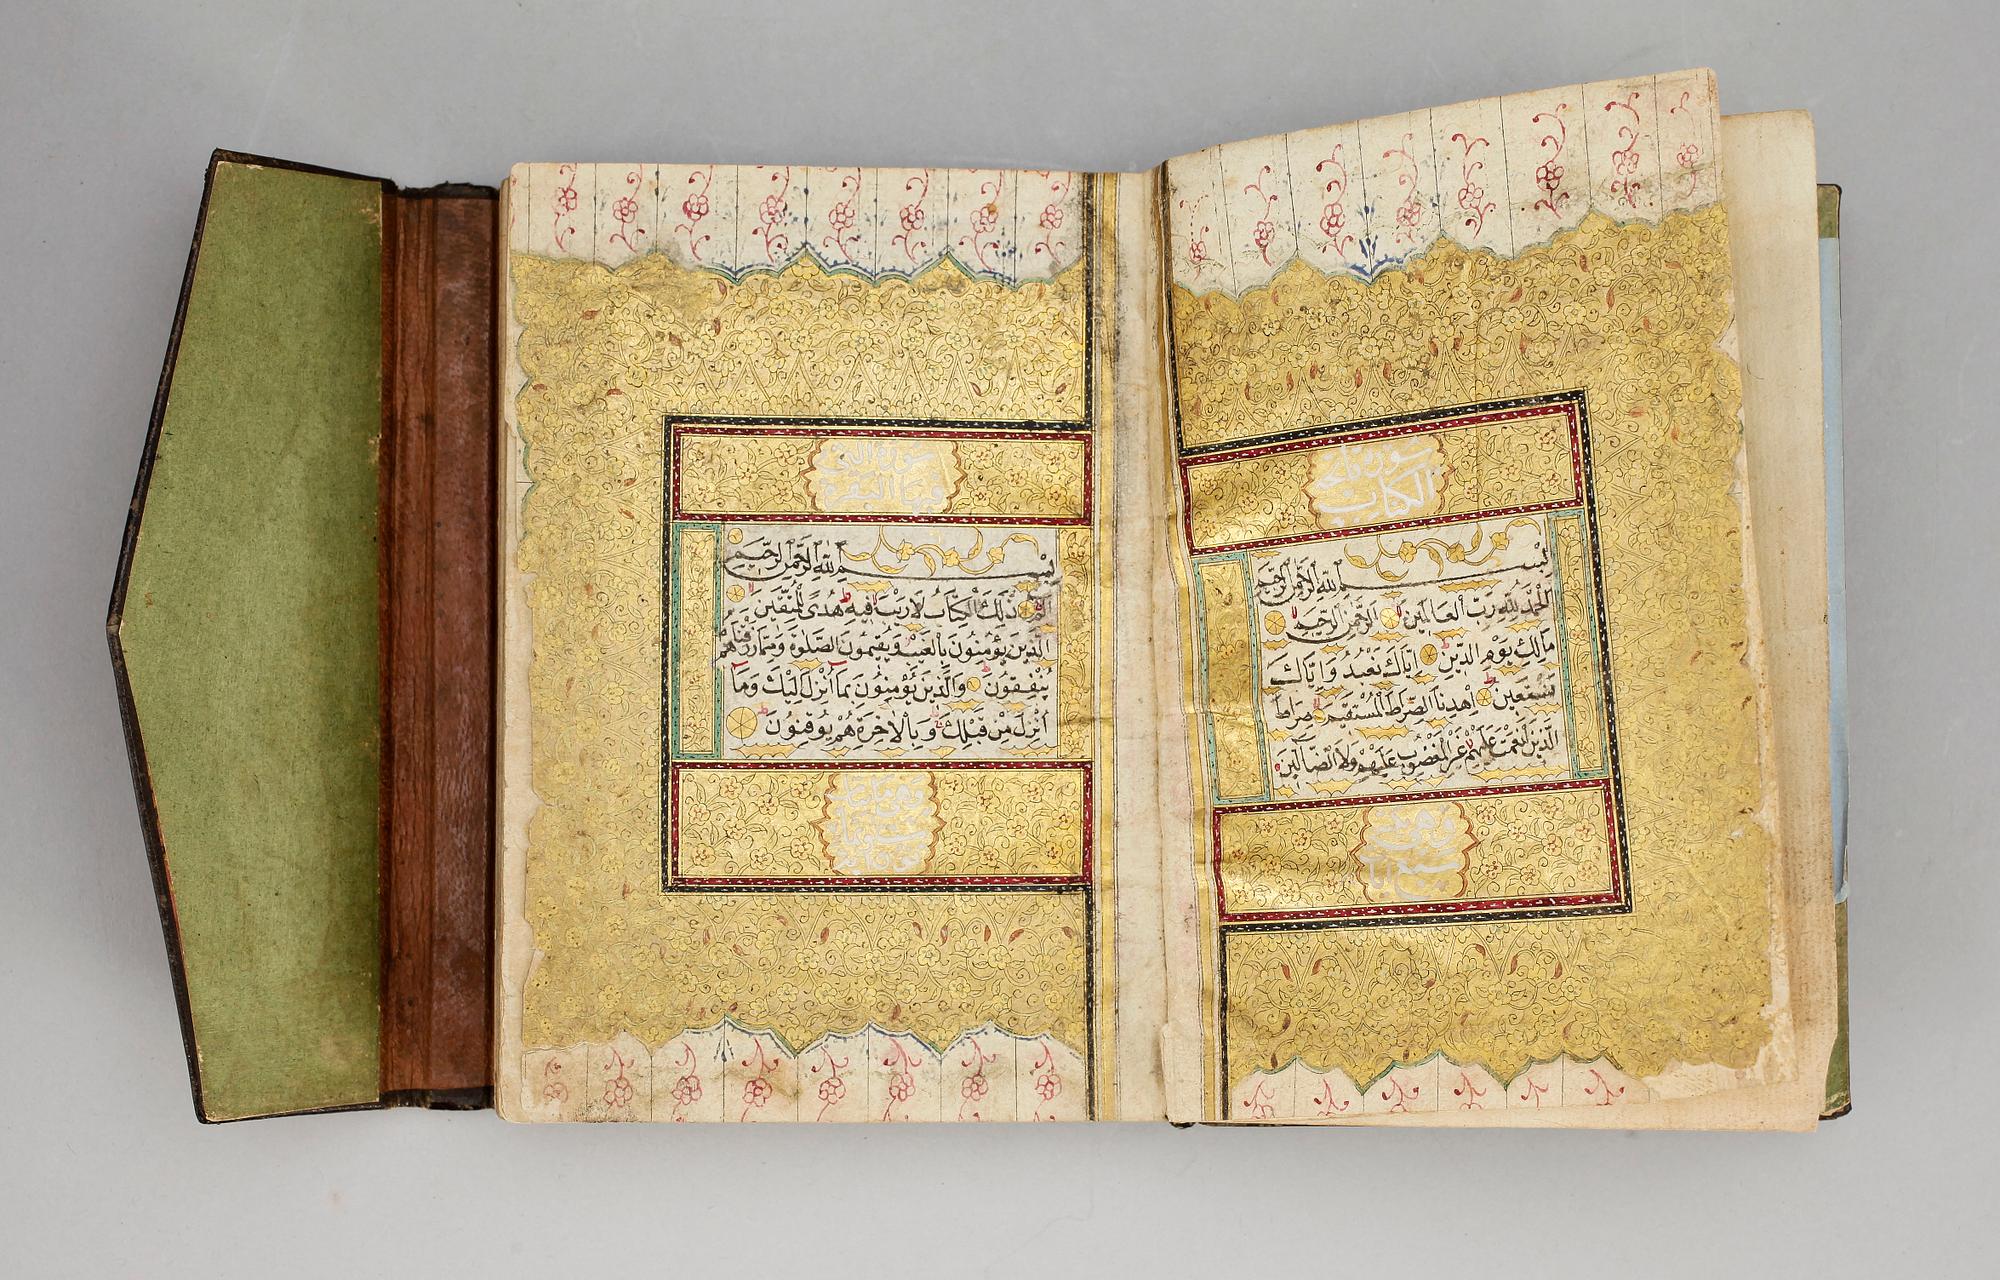 سورة فاتحة
الكتاب
بسم الله الرحمن الرحيم
الْحَمْدُ للهِ رَبِّ الْعَالَمِينَ الرَّحْمٰنِ الرَّحِيمِ
مَالِكِ يَوْمِ الدِّينِ اِيَّاكَ نَعْبُدُ وَاِيَّاكَ
نَسْتَعِينُ اِهْدِنَا الصِّرَاطَ الْمُسْتَقِيمَ صِرَاطَ
الَّذِينَ اَنْعَمْتَ عَلَيْهِمْ غَيْرِ الْمَغْضُوبِ عَلَيْهِمْ وَلَا الضَّالِّينَ
وهي
سبع آيات
سورة التي
فيها البقرة
بسم الله الرحمن الرحيم
الٓمٓ ذٰلِكَ الْكِتَابُ لَارَيْبَ فِيهِ هُدًى لِلْمُتَّقِينَ
الَّذِينَ يُؤْمِنُونَ بِالْغَيْبِ وَيُقِيمُونَ الصَّلٰوةَ وَمِمَّا رَزَقْنَاهُمْ
يُنْفِقُونَ وَالَّذِينَ يُؤْمِنُونَ بِمَا اُنْزِلَ اِلَيْكَ وَمَا
اُنْزِلَ مِنْ قَبْلِكَ وَبِالْاٰخِرَةِ هُمْ يُوقِنُونَ